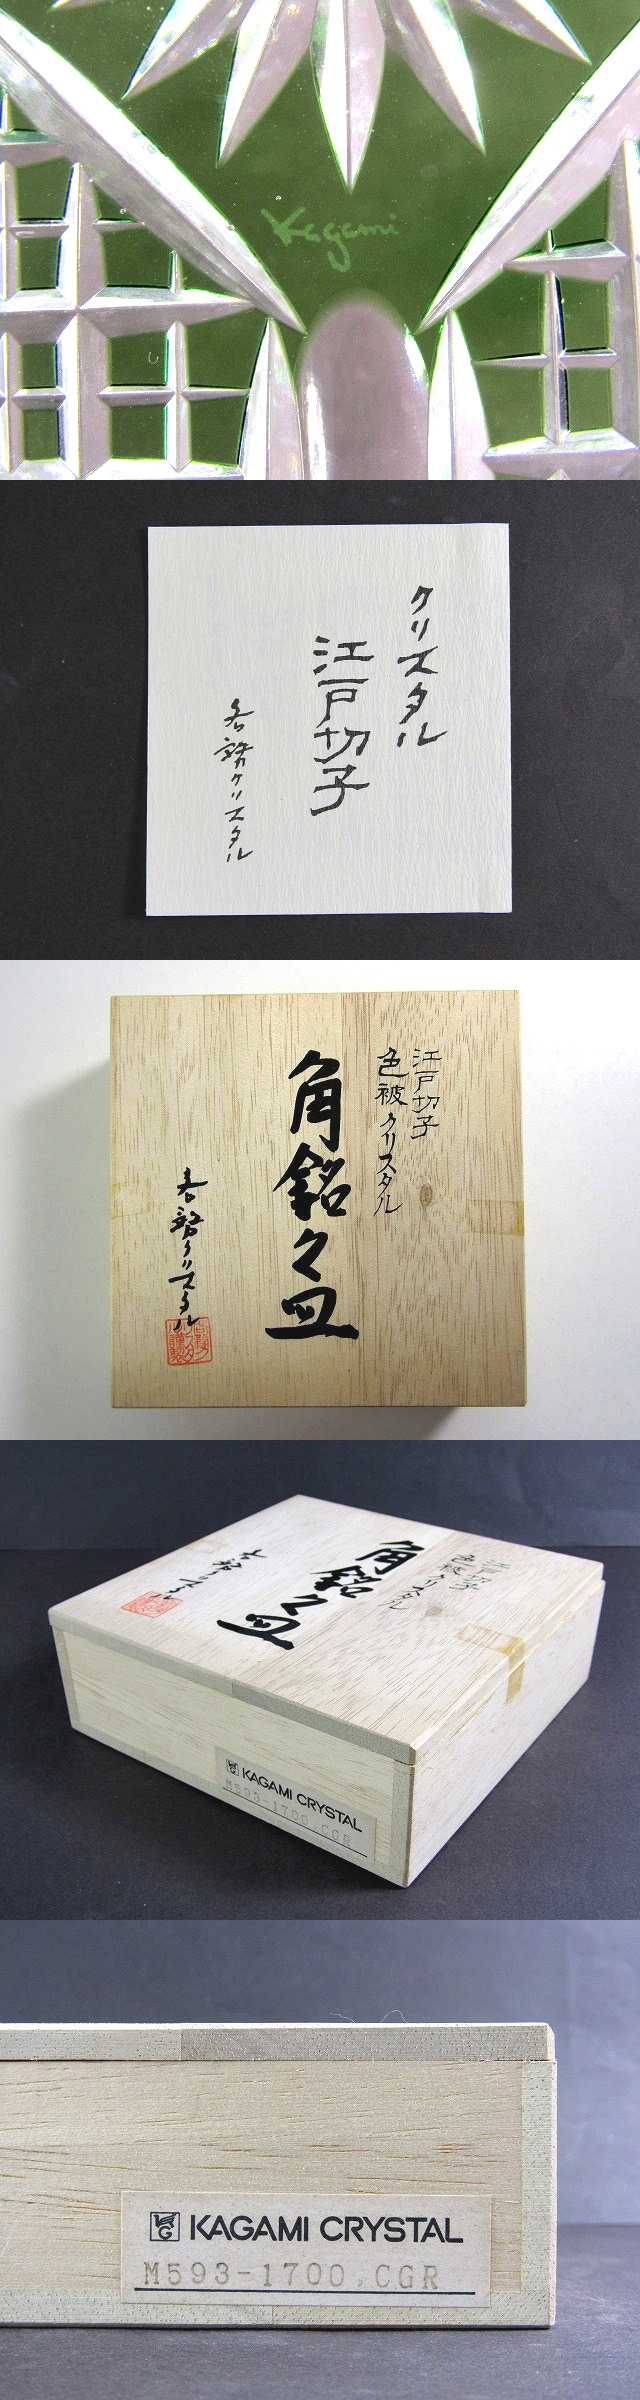 Kagami
クリスタル
江戸切子
各務クリスタル
江戸切子
色被クリスタル
角銘々皿
各務クリスタル
角銘々皿
江戸切子
色被クリスタル
KAGAMI CRYSTAL
M593-1700.CGR
KAGAMI CRYSTAL
M593-1700.CGR